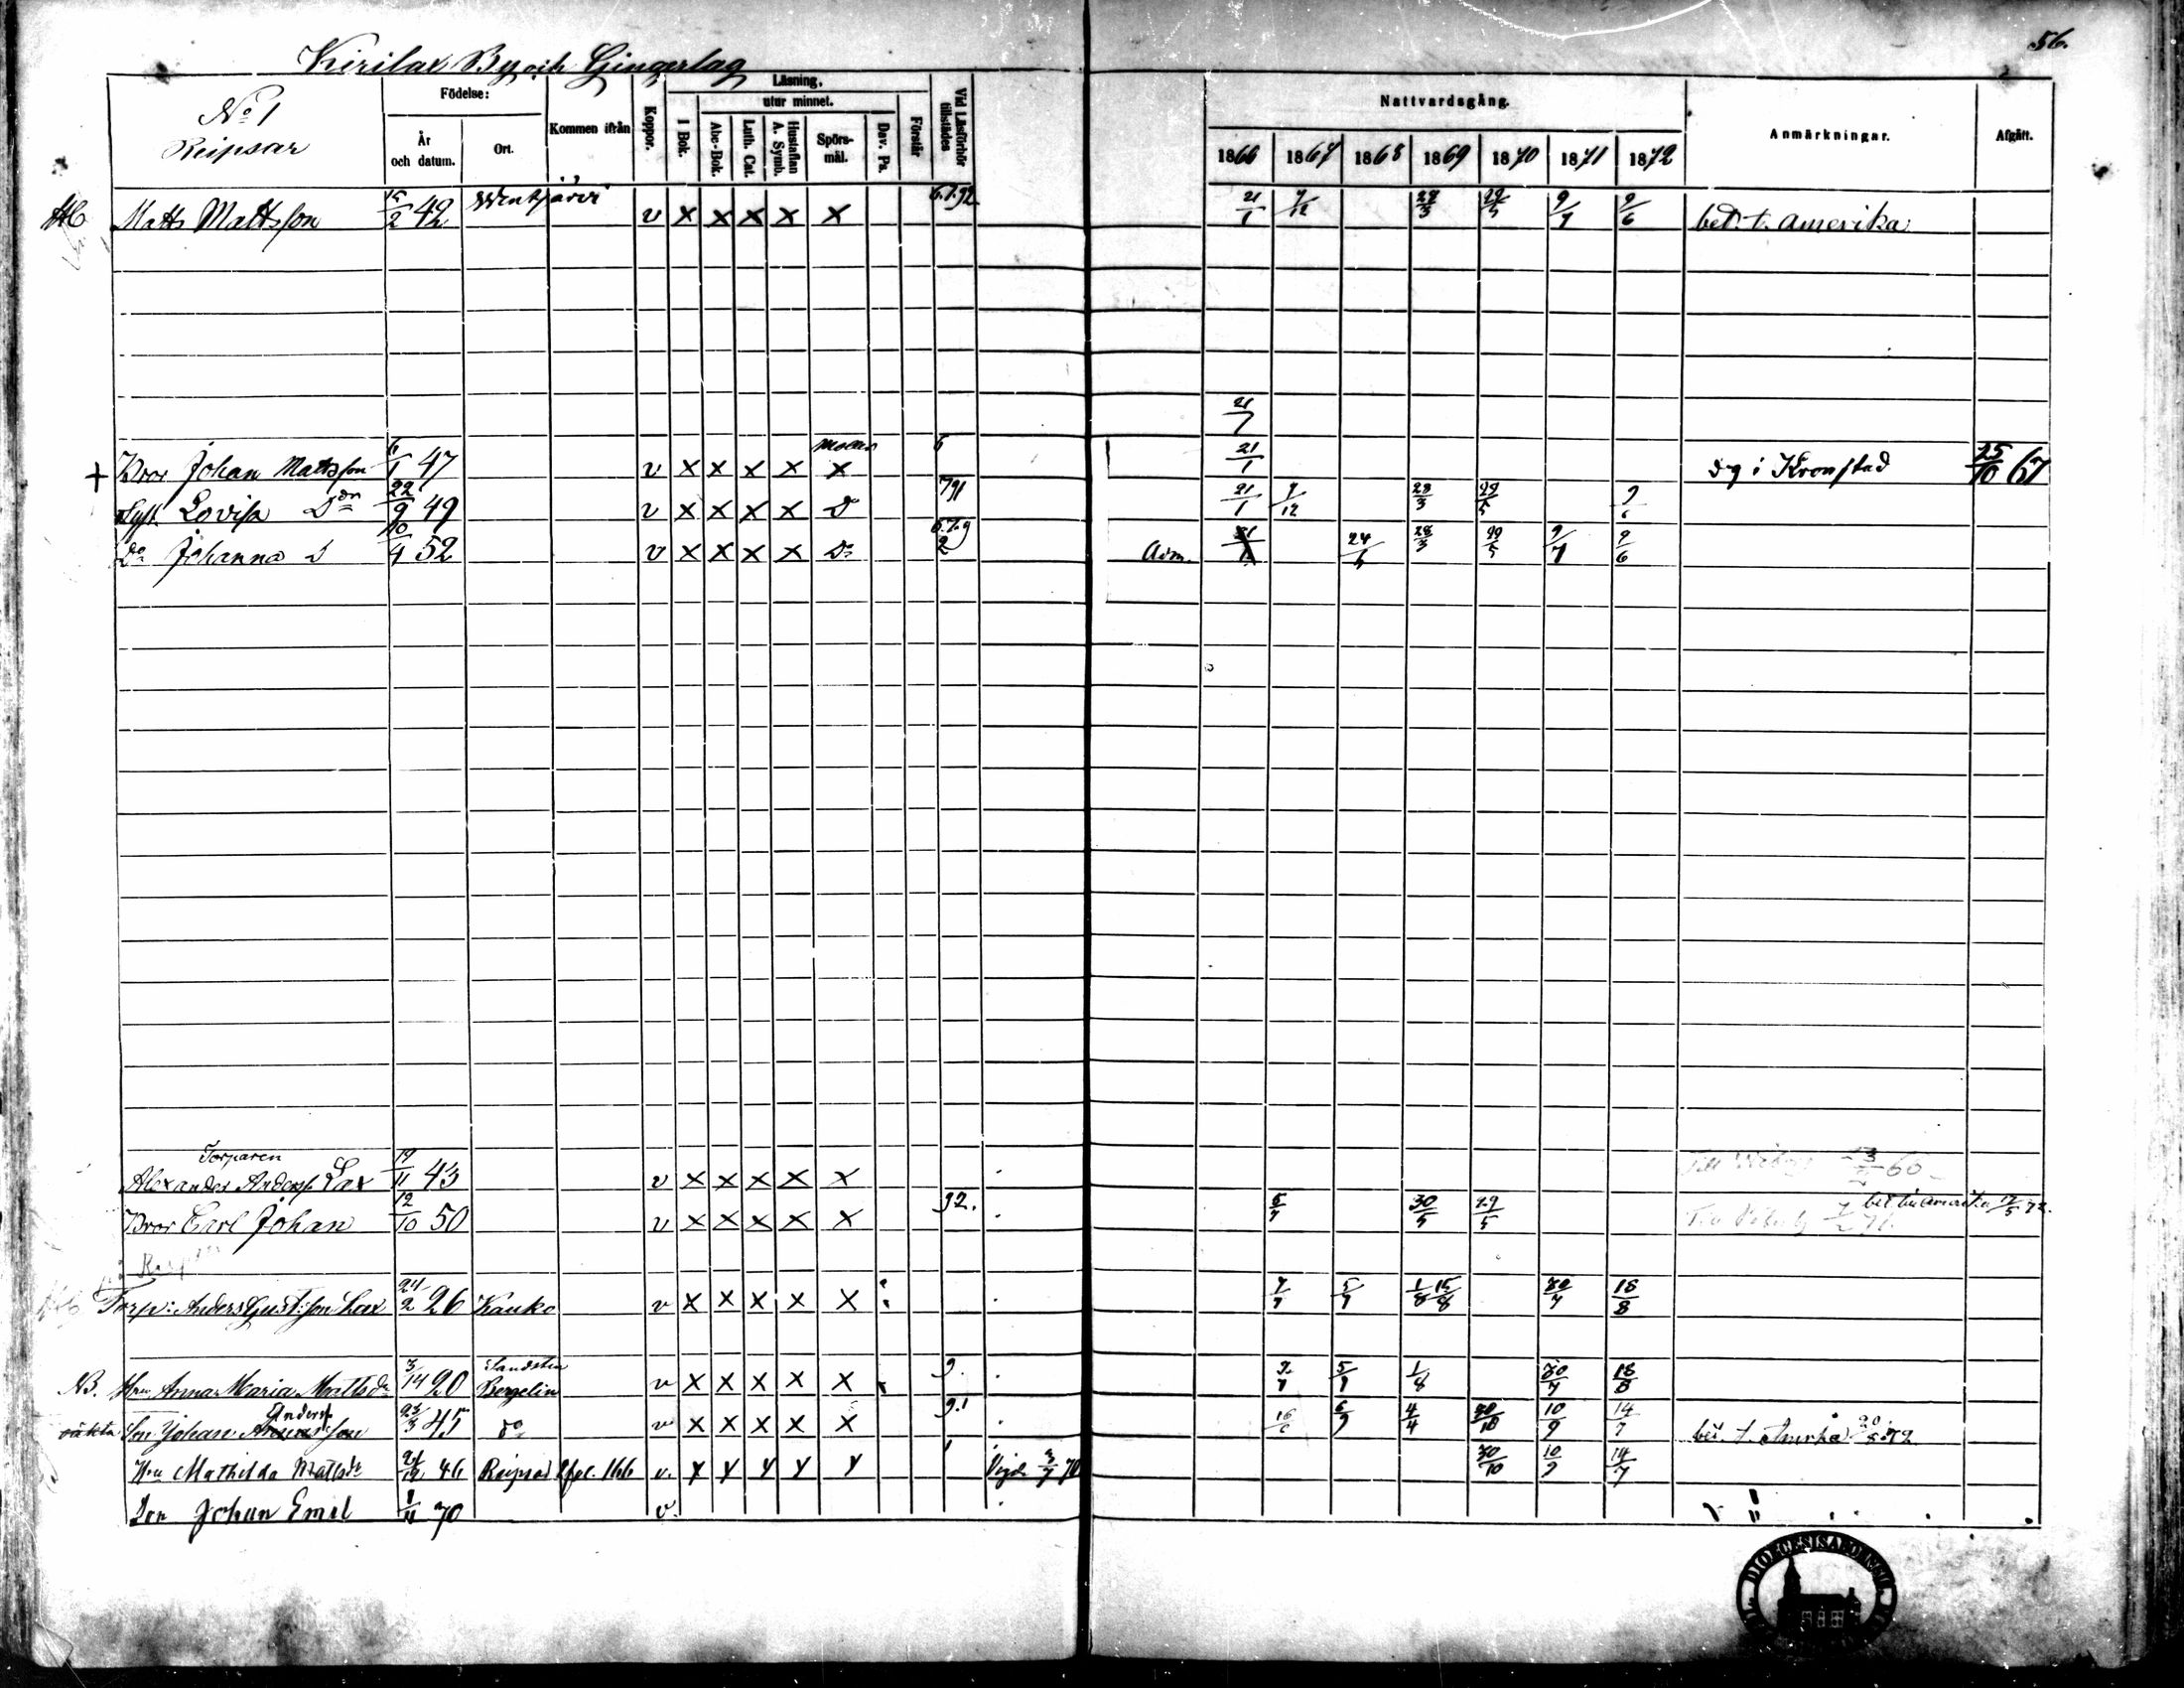 56.
Kirilax By och Gingerlag
No 1
Reipsar
Födelse:
År och datum.
Ort.
Kommen ifrån
Koppor.
Läsning.
I Bok.
utur minnet.
Abc-Bok.
Luth. Cat.
Hustaflan A. Symb.
Spörs-mål.
Dav. Ps.
Förstår
Vid Läsförhör tillstädes
Nattvardsgång.
1866 1867 1868 1869 1870 1871 1872
Anmärkningar.
Afgått.
Matts Mattsson 15/2 42 v x x x x x 6.7.92 21/1 9/12 28/3 29/5 9/7 9/6 bet. t. Amerika
21/7
+ Bror Johan Mattsson 6/1 47 v x x x x x 6 21/1 dog i Kronstad 25/10 67
Syst. Lovisa Dn 22/9 49 v x x x x D 791 21/1 9/12 28/3 29/5
Do Johanna D 10/4 52 v x x x x Do Adm. 24/5 28/3 29/5 9/7 9/6
Torparen
Alexander Anderss. Lax 19/11 43 v x x x x x
Bror Carl Johan 12/10 50 v x x x x x 92. 5/7 30/5 29/5 bet. till Amerika 17/5 72.
Torp: Anders Gust:son Lax 24/2 26 Kauko v x x x x x 7/7 5/7 1/8 15/8 30/7 18/8
Sandsten
NB. Hru Anna Maria Mattsdr 3/14 20 Bergelin v x x x x x 9. 7/7 5/9 1/8 30/7 18/8
oäkta Son Johan Anderss. son 23/3 45 do v x x x x x 9.1 6/9 4/4 30/10 10/9 14/7 bet. t. Amerika 20/8 72
Hru Mathilda Mattsdr 21/12 46 Reipsar fol. 166 v. Vigde 3/7 70 30/10 10/9 14/7
Son Johan Emil 1/11 70 v.